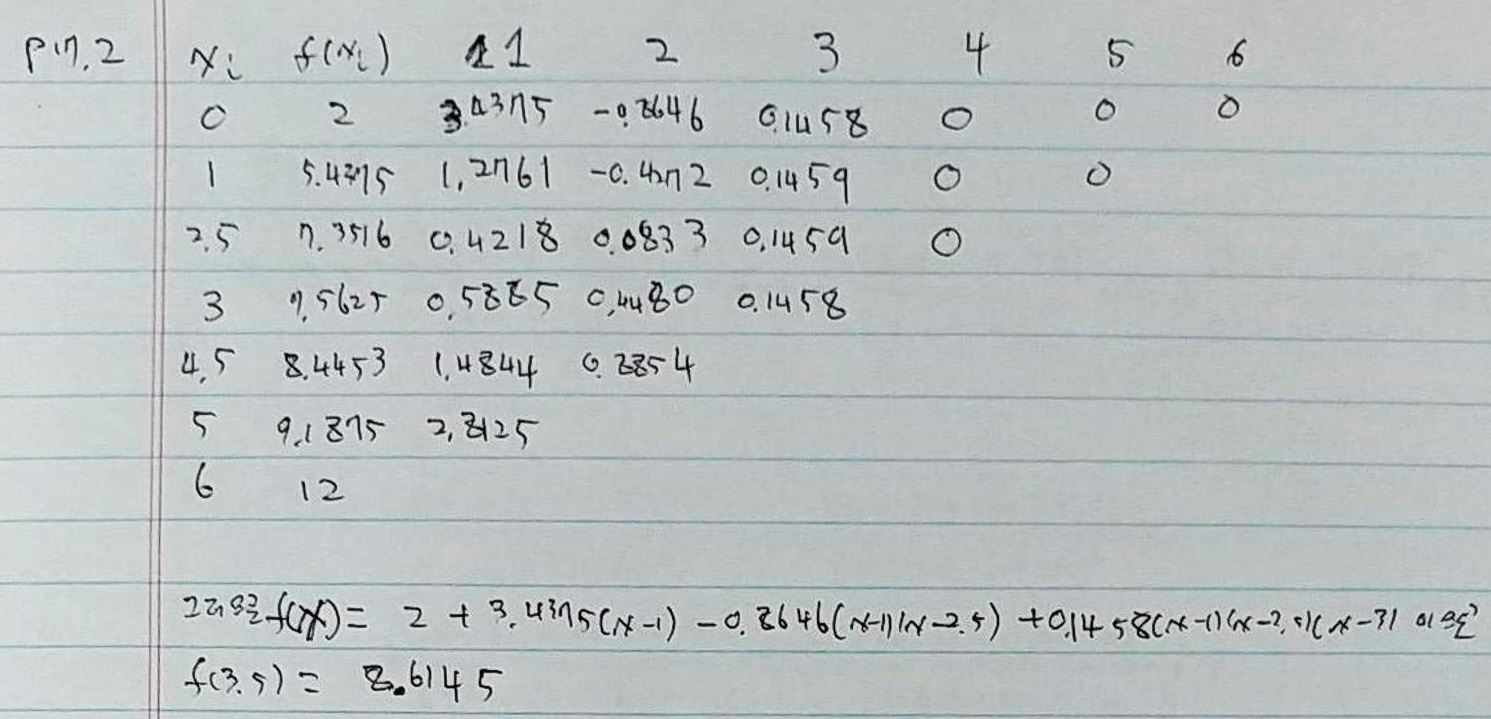 P17.2 xi f(xi) 1 2 3 4 5 6
0 2 3.4375 -0.8646 0.1458 0 0 0
1 5.4375 1.2761 -0.4272 0.1459 0 0
2.5 7.3516 0.4218 0.0833 0.1459 0
3 7.5625 0.5885 0.4480 0.1458
4.5 8.4453 1.4844 0.8854
5 9.1875 2.8125
6 12
그러므로 f(x) = 2 + 3.4375(x-1) - 0.8646(x-1)(x-2.5) + 0.1458(x-1)(x-2.5)(x-3) 이므로
f(3.5) = 8.6145